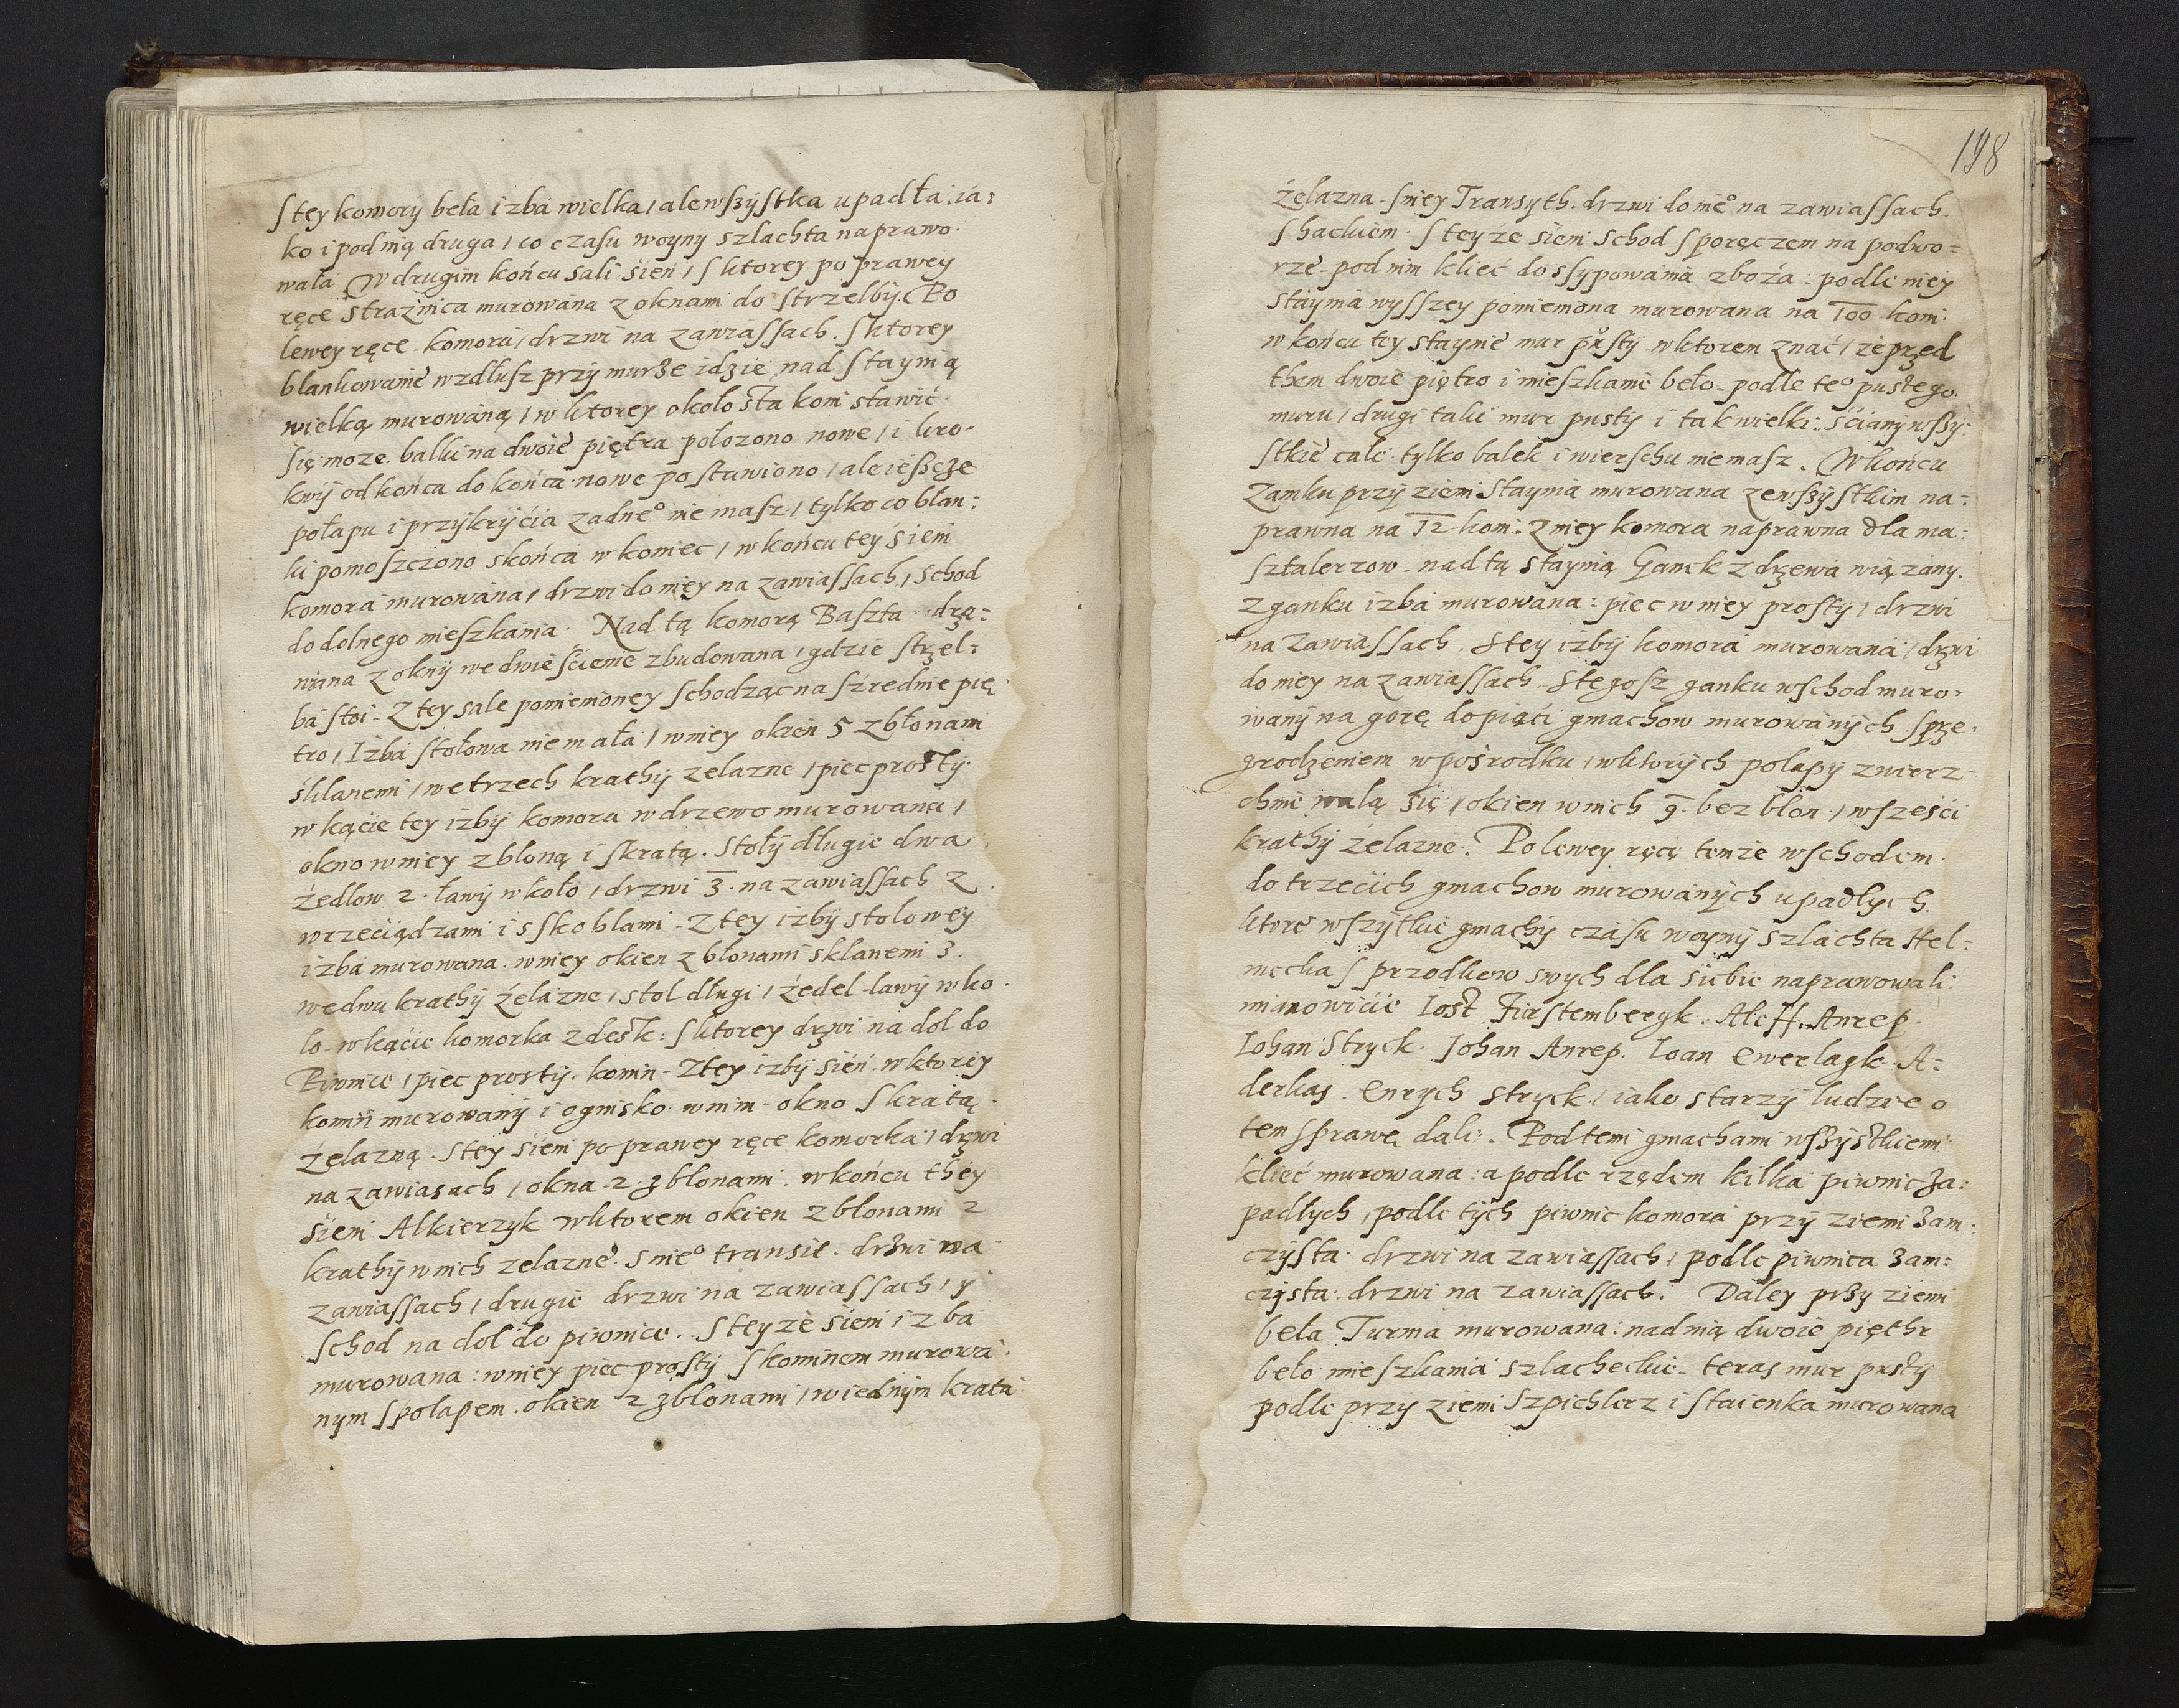 s tey komory beła izba wielka / ale wszystka upadła: ia:
ko i pod nią druga / co czasu woyny szlachta naprawo.
wała. W drugim końcu sali sień / s ktorey po prawey
ręce strażnica murowana z oknami do strzelby. Po
lewey ręce komora / drzwi na zawiassach. s ktorey
blankowanie wzdłusz przy murze idzie nad staynią
wielką murowaną / w ktorey około sta koni stawić
się może. balki na dwoie piętra położono nowe / i kro-
kwy od końca do końca nowe postawiono / ale ieszcze
połapu i przykryćia żadneo nie masz / tylko co blan:
ki pomoszczono s końca w koniec / w końcu tey sieni
komora murowana / drzwi do niey na zawiassach / schod
do dolnego mieszkania. Nad tą komorą Baszta drze:
wiana z okny we dwie ścienie zbudowana / gdzie strzel:
ba stoi. Z tey sale pomienioney schodząc na średnie pię
tro / Izba stołowa nie mała / w niey okien 5 z błonami
śklanemi / we trzech krathy zelazne / piec prosty.
w kącie tey izby komora w drzewo murowana /
okno w niey z błoną i s kratą. Stoły długie dwa
żedlow 2. ławy w koło / drzwi 3. na zawiassach z
wrzeciądzami i s skoblami. Z tey izby stolowey
izba murowana. w niey okien z blonami sklanemi 3.
we dwu krathy żelazne / stol długi / żedel ławy w ko
lo. w kącie komorka z desk: s ktorey drzwi na dol do
Piwnice / piec prosty. komin. Z tey izby sień. w ktorey
komin murowany i ognisko w nim. okno s kratą
żelazną. s tey sieni po prawey ręce komorka / drzwi
na zawiasach / okna 2 z blonami. w końcu they
sieni Alkierzyk w ktorem okien z blonami 2
krathy w nich zelazne. s nieo transit. drzwi na
zawiassach / drugie drzwi na zawiassach / y
schod na dol do piwnice. s teyże sieni izba
murowana: w niey piec prosty s kominem murowa:
nym s polapem. okien 2 z blonami / w iednym krata
198
żelazna. s niey Transyth. drzwi do nieo na zawiassach.
s hacluem. s teyże sieni schod s poręczem na podwo=
rze. pod nim klieć do ssypowania zboża: podle niey
staynia wysszey pomieniona murowana na 100 koni
w końcu tey staynie mur pusty w ktorem znać / że przed
them dwoie piętro i mieszkanie beło. podle teo pustego
muru / drugi taki mur pusty i tak wielki. Ściany wszy:
stkie całe. tylko balek i wierschu nie masz. W końcu
Zamku przy ziemi staynia murowana ze wszystkim na=
prawna na 12 koni. z niey komora naprawna dla ma:
sztalerzow. nad tą staynią Ganek z drzewa wiązany.
z ganku izba murowana: piec w niey prosty / drzwi
na zawiassach. s tey izby komora murowana / drzwi
do niey na zawiassach. s tegosz ganku wschod muro-
wany na gorę do piąći gmachow murowanych s prze-
grodzeniem w pośrodku / w ktorych polapy z wierz=
chnie walą się / okien w nich 9. bez blon / w sześći
krathy zelazne. Po lewey ręce temże wschodem
do trzecich gmachow murowanych upadłych
ktore wszytkie gmachy czasu woyny szlachta Hel=
mecka s przodkow swych dla siebie naprawowali:
mianowicie Iost Firstembergk. Ale H. Anrep
Iohan Stryck. Johan Anrep. Ioan Ewerlagk. A=
derkas. Enrych Stryck / iako starzy ludzie o
tem sprawę dali. Pod temi gmachami wszystkiemi
klieć murowana: a podle rzędem kilka piwnic za:
padłych / podle tych piwnic komora przy ziemi zam:
czysta. drzwi na zawiassach / podle piwnica zam=
czysta. drzwi na zawiassach. Daley przy ziemi
bela Turma murowana: nad nią dwoie pięthr
beło mieszkania szlacheckie. teras mur pusty
podle przy ziemi Szpichlerz i staienka murowana